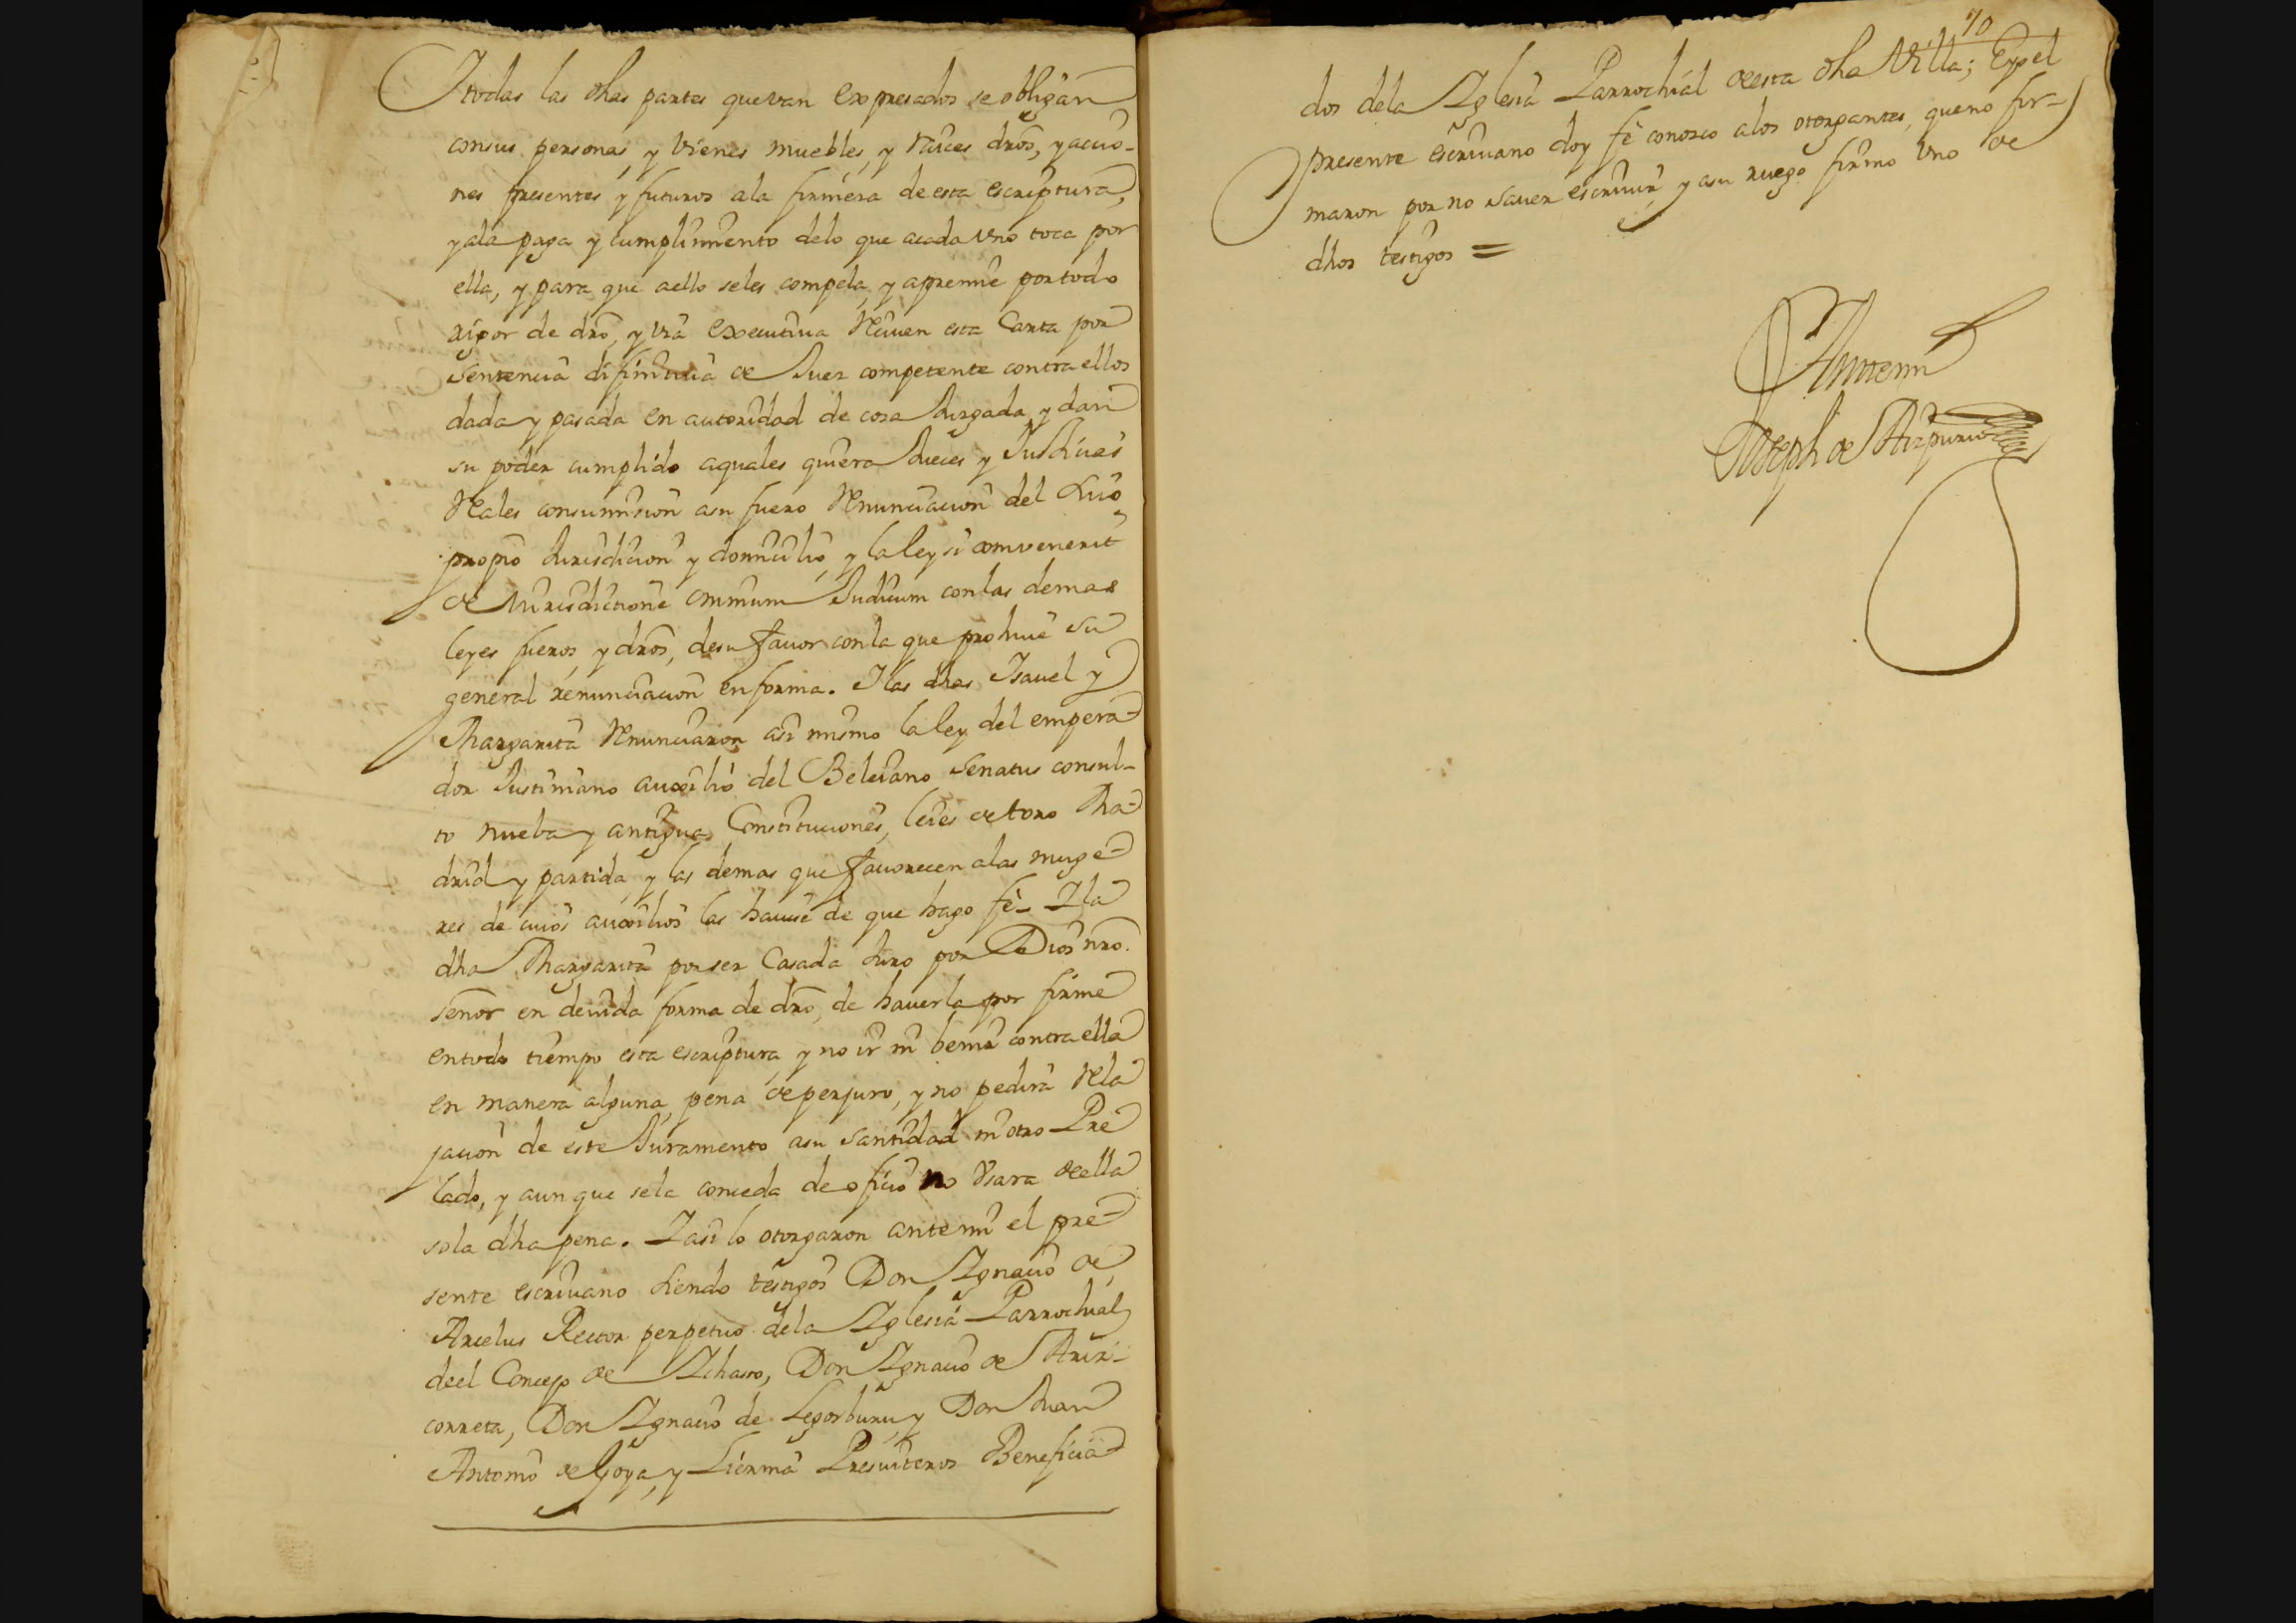 Itodas las dhas partes quevan expresados se obligan
consus personas y vienes muebles, y raices dros, y accio-
nes presentes y futuros ala firmeza de esta escriptura,
yala paga y cumplimiento delo que acada vno toca por
ella, y para que aello seles compela, y apremie portodo
rigor de dro, y via executiua Reciuen esta Carta por
Sentencia difinitiua de Juez competente contra ellos
dada y pasada en autoridad de cosa Juzgada y dan
su poder cumplido aquales quiera Jueces y Justicias
Reales consumision asu fuero Renunciacion del suio
propio Jurisdicion y domicilio, y la ley si conuenerit
de Jurisdictione omnium Judicum conlas demas
leyes fueros, y dros, desu fauor conla que prohiue su
general renunciacion enforma. Ilas dhas Isauel y
Margarita Renunciaron asi mismo la ley del empera-
dor Justiniano auxilio del Beleiano Senatus consul-
to nueba y antigua Constituciones, leies de toro Ma-
drid y partida y las demas que fauorecen alas muge-
res de cuios auxilios las hauise de que hago fe- Ila
dha Margarita por ser Casada Juro por Dios nro.
señor en deuida forma de dro, de hauerla por firme
entodo tiempo esta escriptura y no ir ni benir contra ella
en manera alguna, pena de perjuro, y no pedira rela
jacion de este Juramento asu santidad ni otro Pre
lado, y aun que sela conceda de oficio no Vsara de ella
sola dha pena. Iasi lo otorgaron ante mi el pre-
sente escriuano siendo testigos Don Ignacio de
Arcelus Rector perpetuo dela Iglesia Parrochial
deel Concejo de Ichaso, Don Ignacio de Ariz-
correta, Don Ignacio de Legorburu, y Don Juan
Antonio de Goya, y Lierma Presuiteros Beneficia-
70
dos dela Iglesia Parrochial de esta dha Villa; Eyo el
presente escriuano doy fe conozco alos otorgantes, queno fir-
maron por no sauer escriuir, y asu ruego firmo vno de
dhos testigos =
Antemi
Joseph de Aizpuru